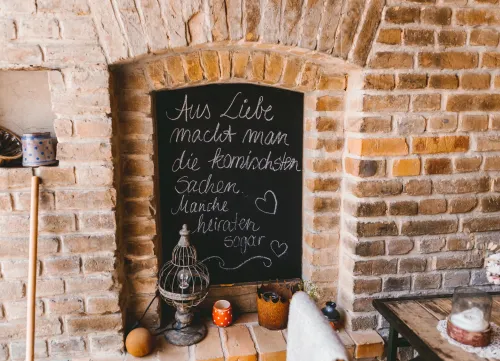 Aus Liebe
macht man
die komischsten
Sachen.
Manche
heiraten
sogar